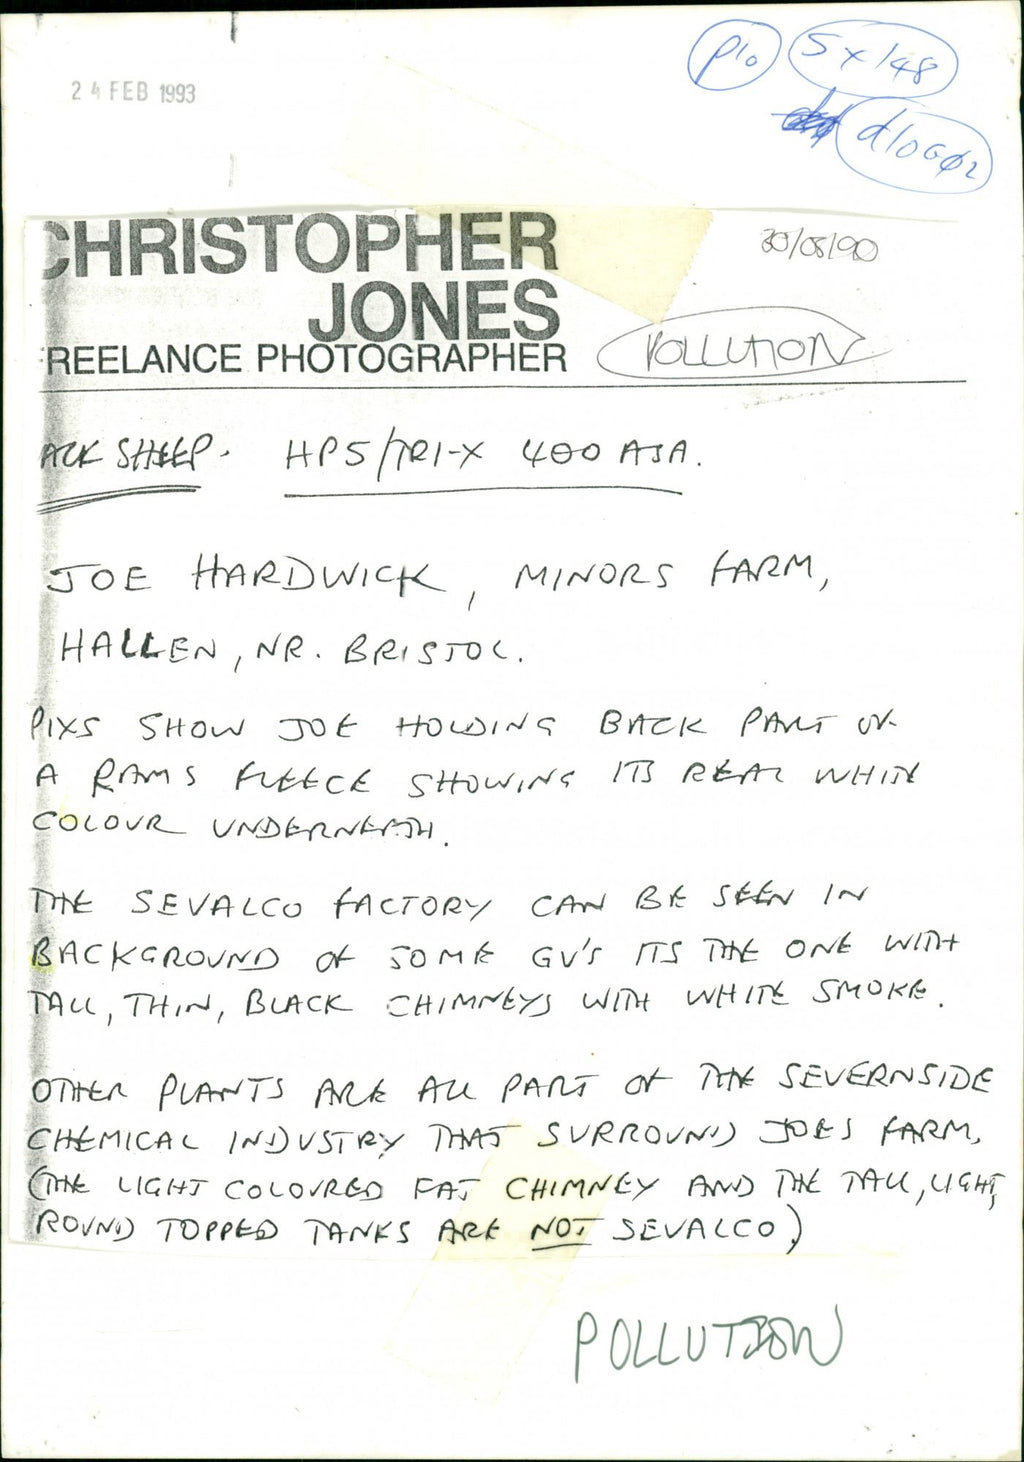 24 FEB 1993
p10
5x148
d10GØ2
CHRISTOPHER
JONES
REELANCE PHOTOGRAPHER
30/08/90
POLLUTION
ACK SHEEP. HP5/TRI-X 400 ASA.
JOE HARDWICK, MINORS FARM,
HALLEN, NR. BRISTOL.
PIXS SHOW JOE HOLDING BACK PART OF
A RAMS FLEECE SHOWING ITS REAL WHITE
COLOUR UNDERNEATH.
THE SEVALCO FACTORY CAN BE SEEN IN
BACKGROUND OF SOME GV'S ITS THE ONE WITH
TALL, THIN, BLACK CHIMNEYS WITH WHITE SMOKE.
OTHER PLANTS ARE ALL PART OF THE SEVERNSIDE
CHEMICAL INDUSTRY THAT SURROUND JOES FARM,
(THE LIGHT COLOURED FAT CHIMNEY AND THE TALL, LIGHT,
ROUND TOPPED TANKS ARE NOT SEVALCO)
POLLUTION